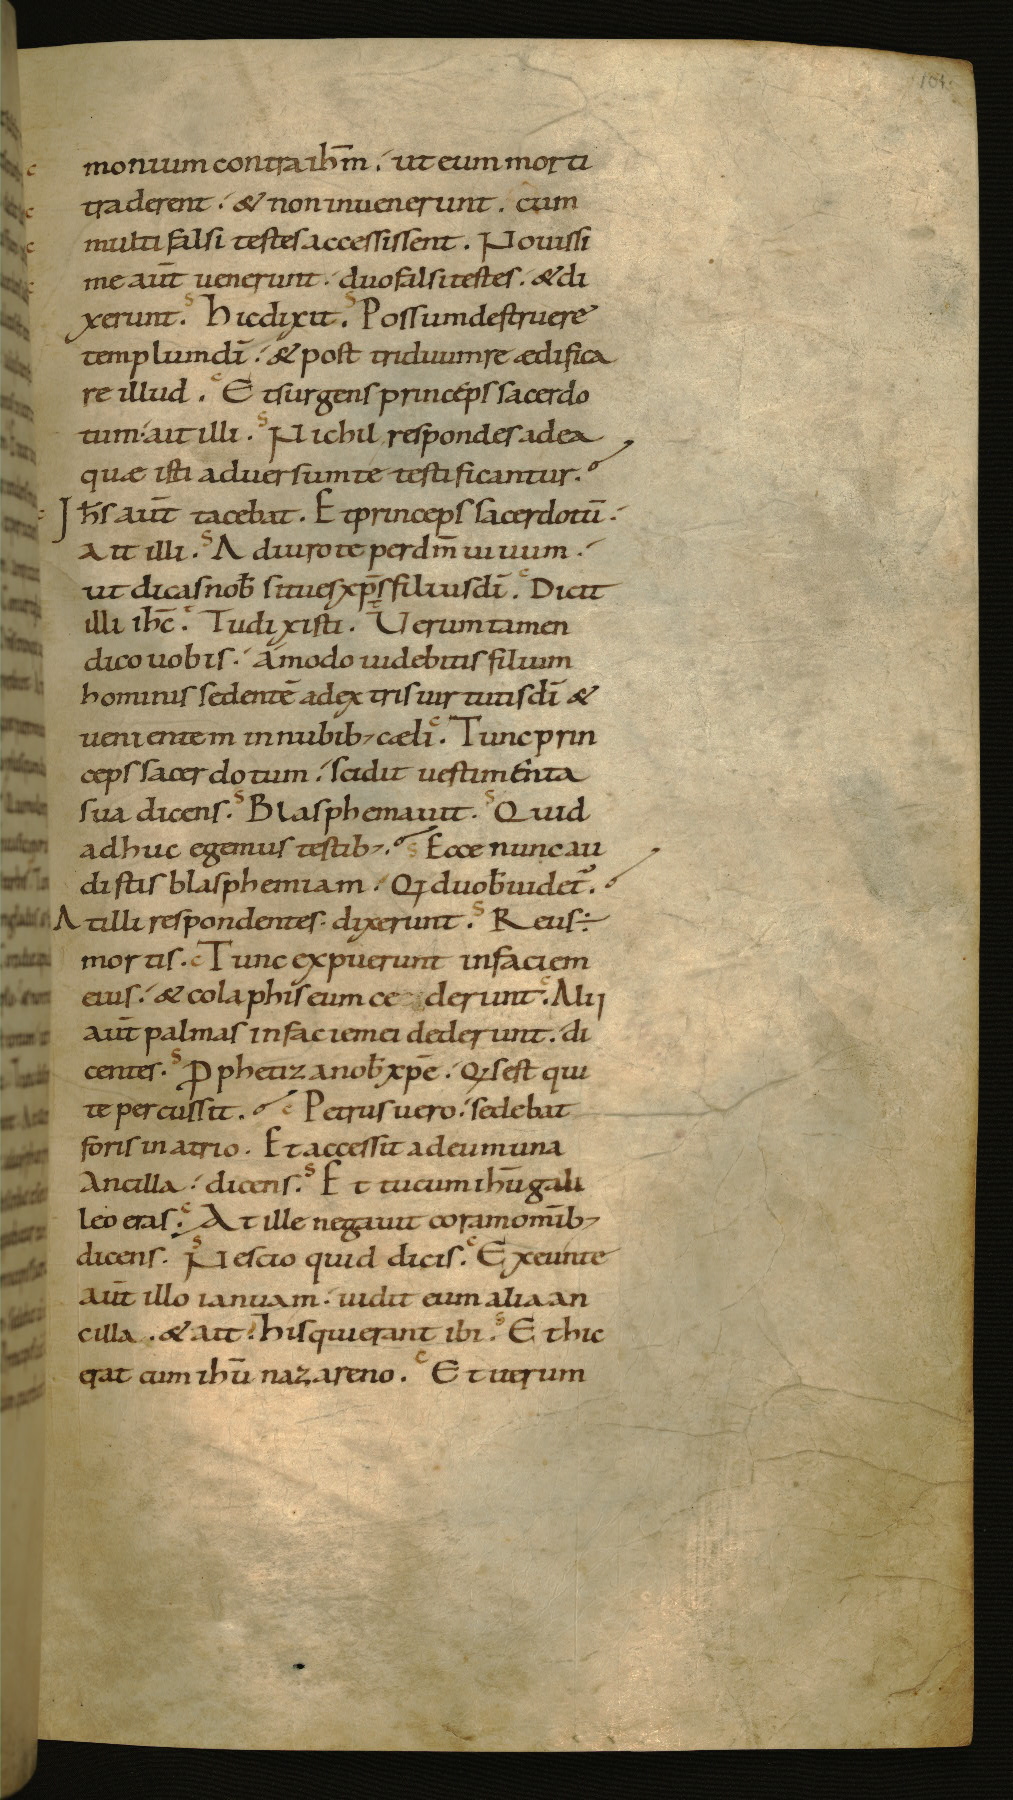 104
monium contra ihm̄ · ut eum morti
traderent · & non invenerunt · cum
multi falsi testes accessissent. Novissi
me aūt venerunt · duo falsi testes · & di
xerunt. s Hic dixit. s Possum destruere
templum dī · & post triduum reædifica
re illud. c Et surgens princeps sacerdo
tum · ait illi. s Nichil respondes ad ea
quæ isti adversum te testificantur.
Ihs̄ aūt tacebat. Et princeps sacerdotū ·
ait illi. s Adiuro te per dm̄ vivum ·
ut dicas nob̄ si tu es xp̄s filius dī. c Dicit
illi ihc̄. Tu dixisti. Verumtamen
dico vobis · amodo videbitis filium
hominis sedentē a dextris virtutis dī &
venientem in nubib; cæli. c Tunc prin
ceps sacerdotum · scidit vestimenta
sua dicens. s Blasphemavit. s Quid
adhuc egemus testib;. s Ecce nunc au
distis blasphemiam · Qd vob̄ videt̄.
At illi respondentes · dixerunt. s Reus ÷
mortis. c Tunc expuerunt in faciem
eius · & colaphis eum ce derunt. c Alij
aūt palmas in faciem ei dederunt · di
centes. s Pphetiza nob̄ xpē · Qs est qui
te percussit. c Petrus vero · sedebat
foris in atrio. Et accessit ad eum una
Ancilla · dicens. s Et tu cum ihū gali
leo eras. c At ille negavit coram omīb;
dicens. s Nescio quid dicis. c Exeunte
aūt illo ianuam · vidit eum alia an
cilla · & ait · his qui erant ibi. s Et hic
erat cum ihū nazareno. c Et iterum